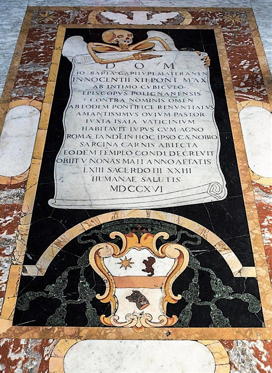 D O M
INNOCENTII XII PONT MAX
AB INTIMO CUBICULO
EPISCOPUS POLIGNANENSIS
CONTRA NOMINIS OMEN
EODEM PONTIFICE RENUNTIATA
AMANTISSIMUS OVIUM PASTOR
IUXTA ISAIÆ VATICINIUM
HABITAVIT LUPUS CUM AGNO
ROMÆ TANDEM HOC IPSO CÆNOBIO
SARCINA CARNIS ABIECTA
EODEM TEMPLO CONDI DECREVIT
OBIIT V NONAS MAII ANNO ÆTATIS
LXIII SACERDOTII XXXIII
HUMANÆ SALUTIS
MDCCXVI